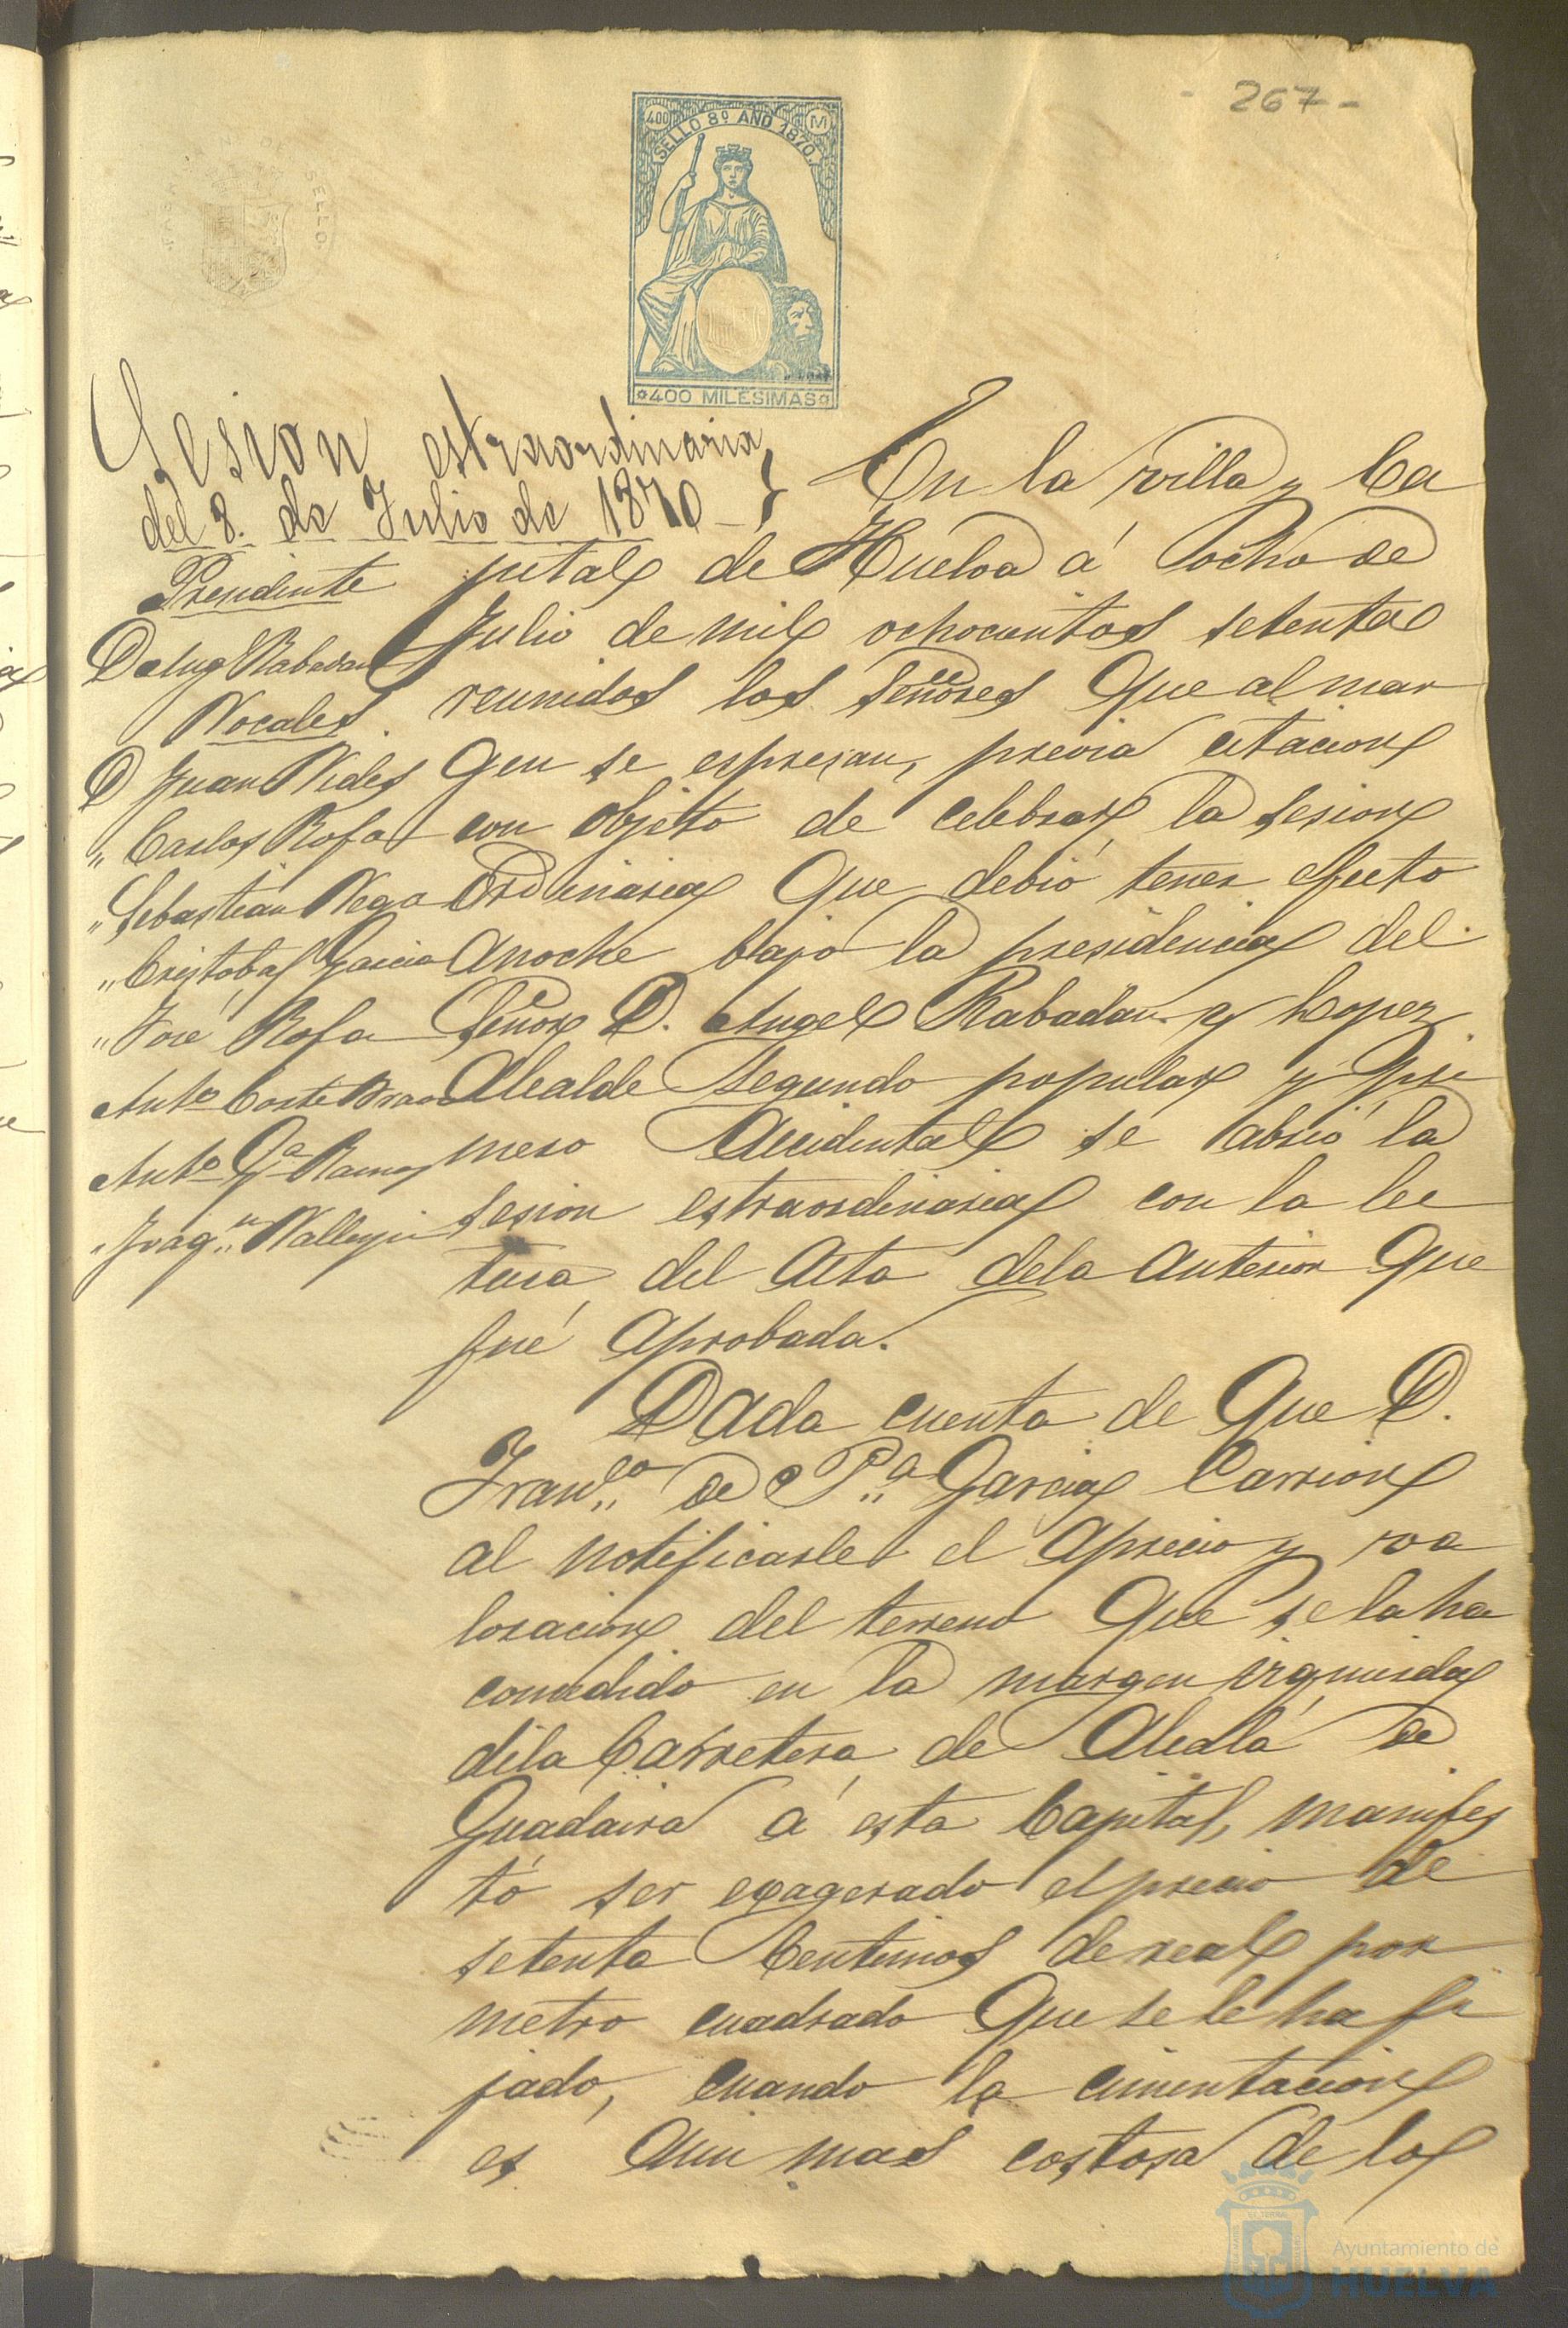 - 267 -
SELLO 8º AÑO 1870.
400
M
400 MILESIMAS
Sesion estraordinaria
del 8. de Julio de 1870
Presidente
D Ang Rabadan
Vocales.
D Juan Vides
" Carlos Rofa
" Sebastian Vega
" Cristobal Garcia
" José Rofa
Antº Corte
Antº Gª Ramos
" Joaqn Vallejo
En la villa y Ca
pital de Huelva á ocho de
Julio de mil ochocientos setenta
reunidos los Señores que al mar
gen se espresan, previa citacion
con objeto de celebrar la sesion
Ordinaria que debió tener efecto
anoche bajo la presidencia del
Señor D. Angel Rabadan y Lopez
Alcalde Segundo popular y Pri
mero Accidental se abrió la
sesion estraordinaria con la lec
tura del Acta dela anterior que
fué aprobada.
Dada cuenta de que D.
Franco de Pa Garcia Carrion
al notificarle el aprecio y va
loracion del terreno que se la ha
concedido en la margen izquierda
dela Carretera de Alcalá de
Guadaira á esta Capital, manifes
tó ser exagerado el precio de
setenta Centimos de real por
metro cuadrado que se le ha fi
jado, cuando la cimentacion
es aun mas costosa de los
Ayuntamiento de
HUELVA